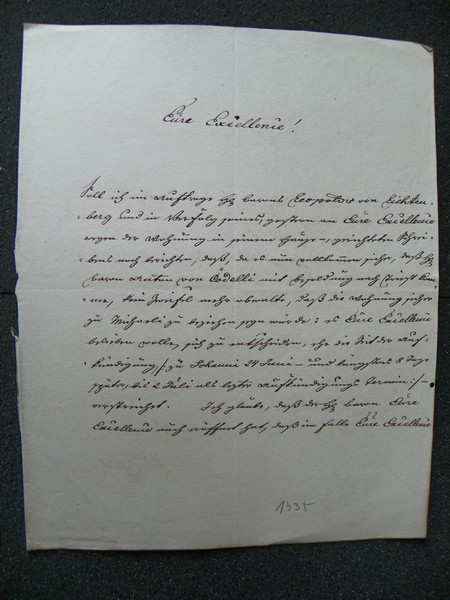 Eure Excellence!
Soll ich im Auftrage H: Barons Leopold von Lichten-
berg und in Verfolg seines, gestern an Eure Excellence
wegen der Wohnung in seinem Hause, gerichteten Schrei-
bens noch berichten, daß, da es nun vollkommen sicher, daß H:
Baron Anton von Codelli mit Besoldung nach Triest kom-
me, kein Zweifel mehr obwalte, daß die Wohnung sicher
zu Michaeli zu beziehen seyn würde: es Eure Excellence
belieben wolle, sich zu entscheiden, ehe die Zeit der Auf-
kündigung /: zu Johanni 24 Juni – und längstens 8 Tage
später, bis 2 Juli als letzter Aufkündigungs Termin :/
verstreichet. Ich glaube, daß der H: Baron Eure
Excellence auch eröffnet hat, daß im Falle Eure Excellence
1335